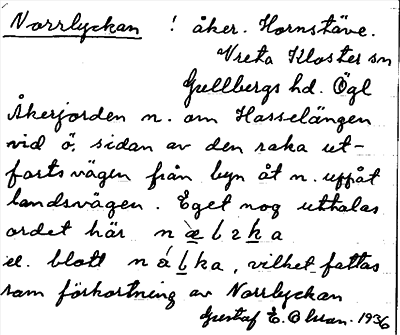 Norrlyckan ! åker. Hornstäve.
Vreta Kloster sn
Gullbergs hd. Ögl
Åkerjorden n. om Hasselängen
vid ö. sidan av den raka ut-
fartsvägen från byn åt n. uppåt
landsvägen. Eget nog uttalas
ordet här
el. blott nålka, vilket fattas
som förkortning av Norrlyckan
Gustaf E. Olsson. 1936